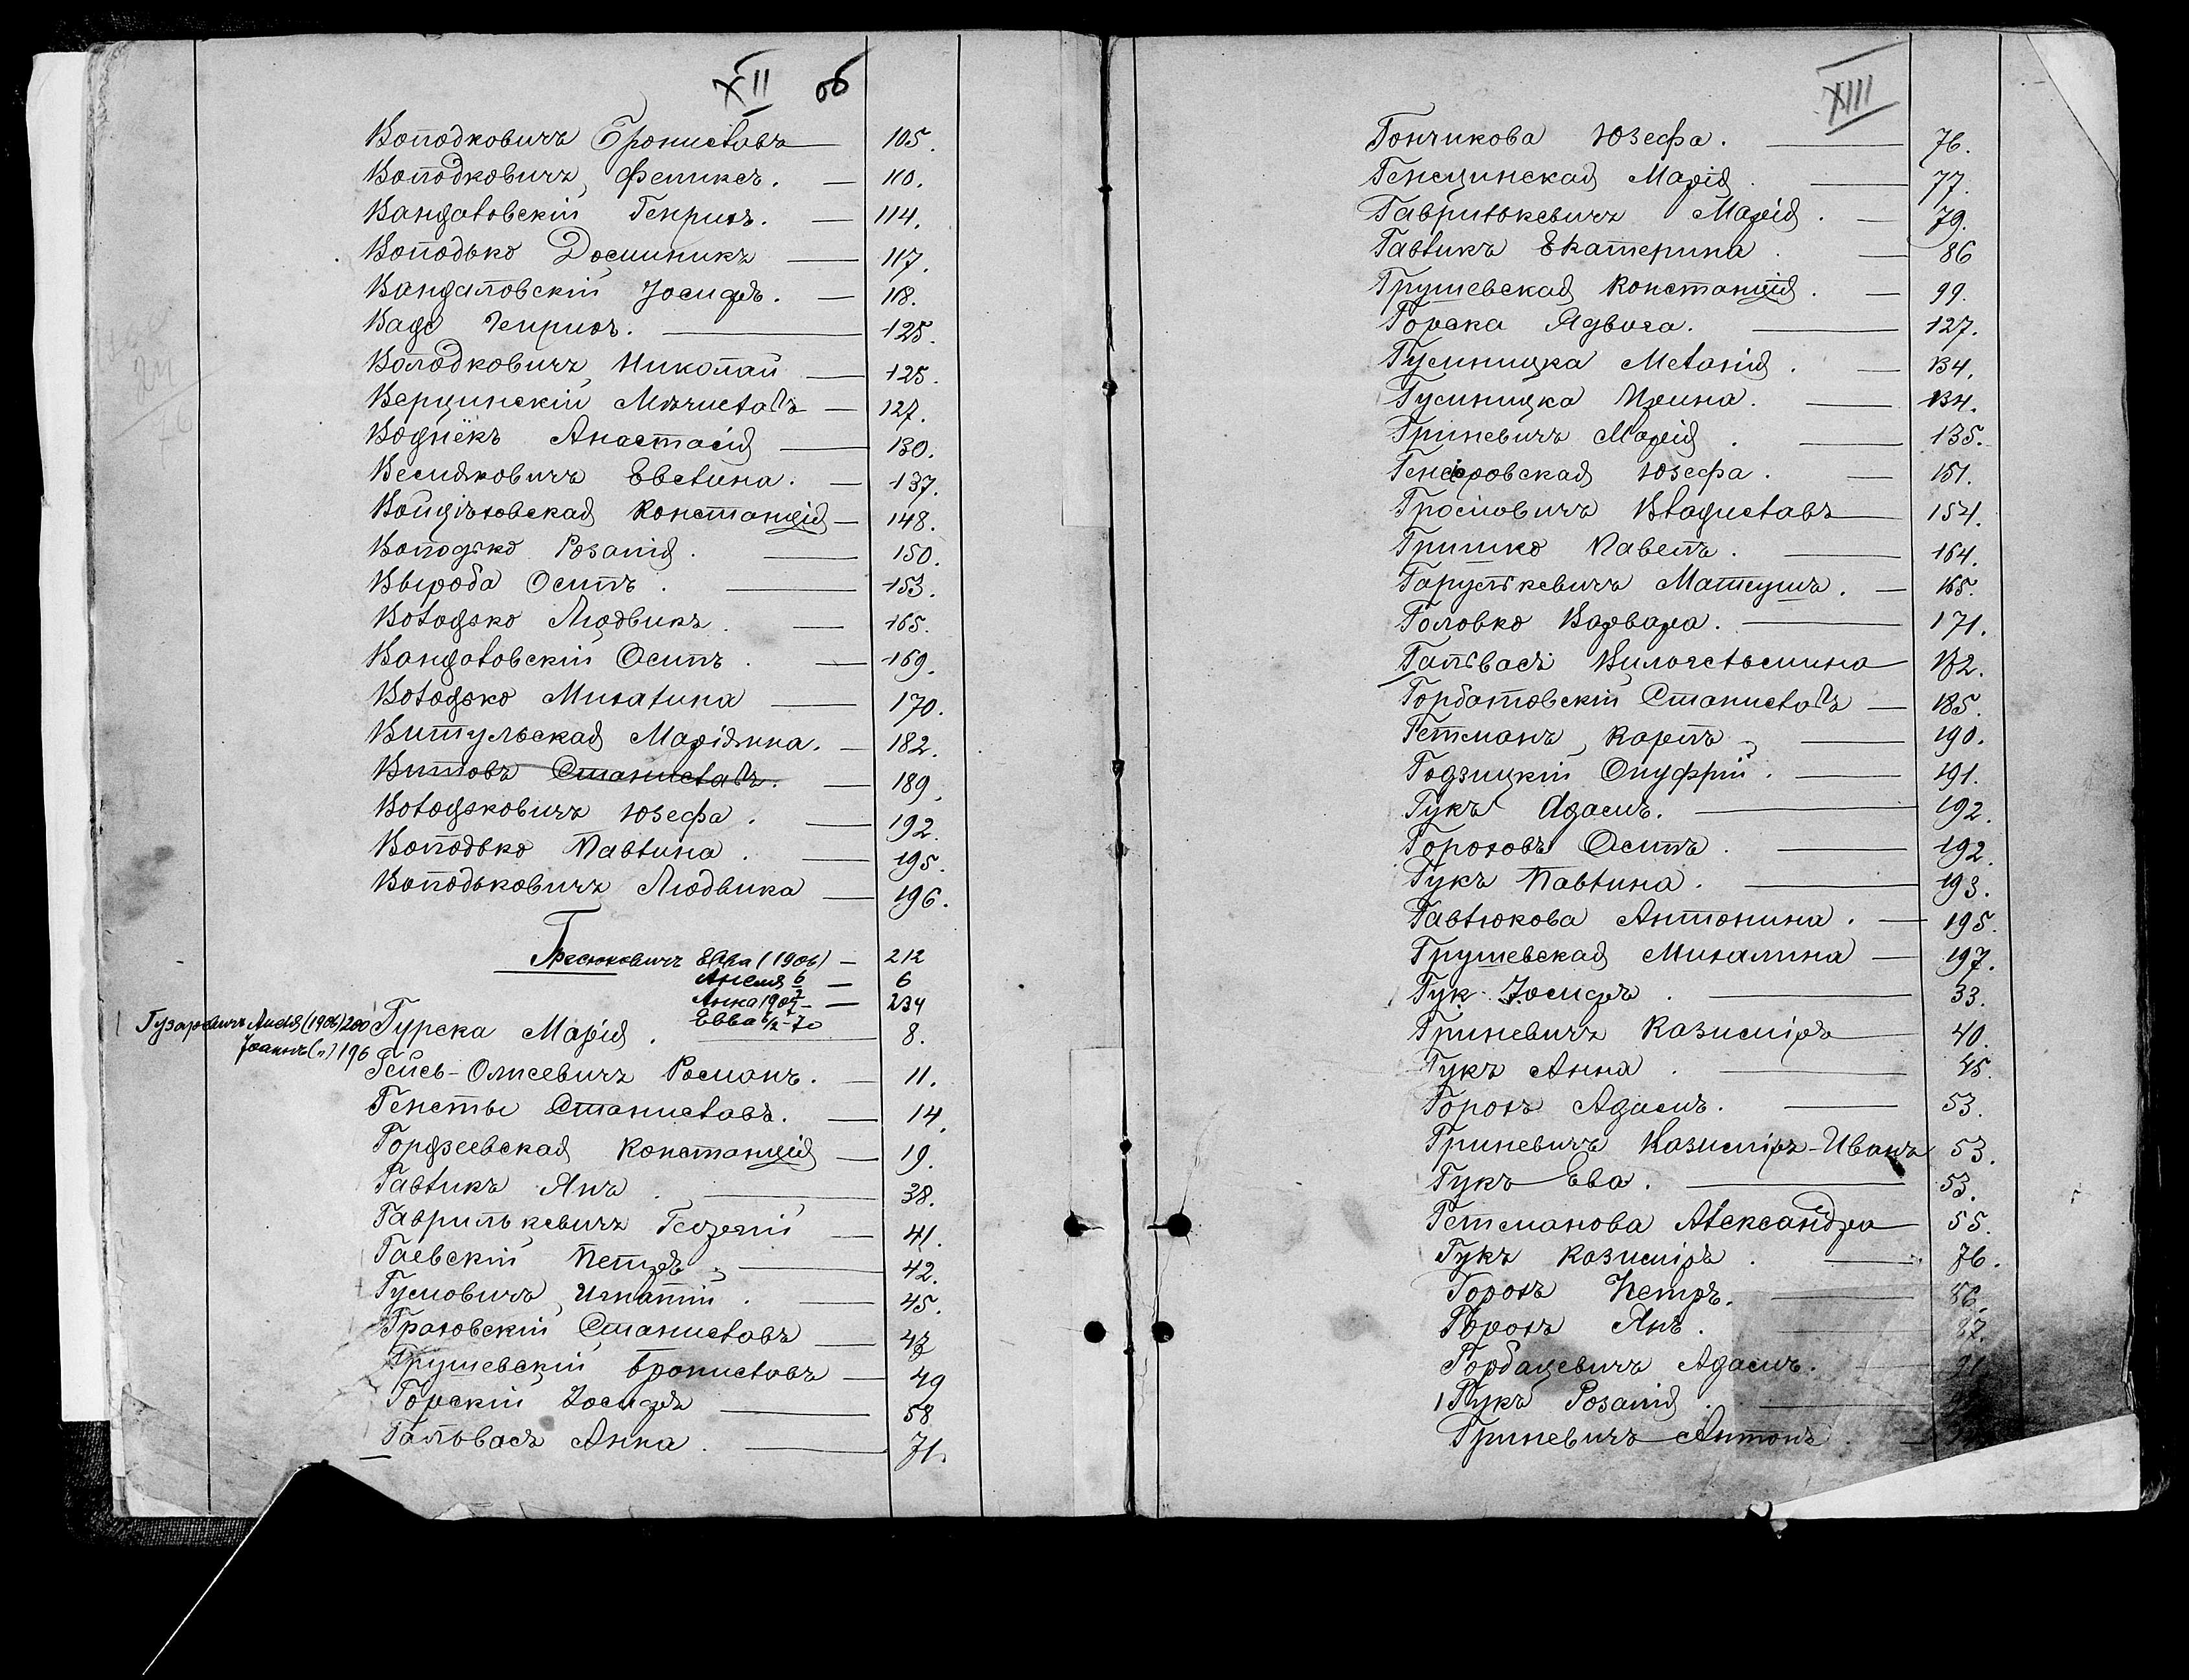 XII об
Володковичъ Брониславъ 105.
Володковичъ Феликсъ. 110.
Вандаловскій Генрихъ. 114.
Володько Доминикъ 117.
Вандаловскій Іосифъ. 118.
Вадо Генрихъ. 125.
Володковичъ Николай 125.
Верцинскій Мѣчиславъ 127.
Воднёкъ Анастасія 130.
Весляковичъ Евелина. 137.
Войцѣховская Констанція 148.
Володько Розалія. 150.
Выроба Осипъ. 153.
Володько Людвикъ. 165.
Вандаловскій Осипъ. 169.
Володько Михалина 170.
Витульская Маріянна. 182.
Витовъ Станиславъ. 189.
Володьковичъ Юзефа. 192.
Володько Павлина. 195.
Володьковичъ Людвика 196.
Гресюкевичъ Евва (1906) 212
Анеля 6 6
Анна 1907 234
Евва 6/2-70
Гузаревичъ Анеля (1906) 200
Іоаннъ (") 196
Гурска Марія. 8.
Гейсь-Олисевичъ Романъ. 11.
Генсты Станиславъ. 14.
Гордзеевская Констанція 19.
Гавликъ Янъ. 38.
Гаврилькевичъ Георгій 41.
Гаевскій Петръ. 42.
Гусмовичъ Игнатій. 45.
Граховскій Станиславъ 48
Грушевскій Брониславъ 49
Горскій Іосифъ 58
Гальвасъ Анна. 71.
XIII
Гончикова Юзефа. 76.
Генсцинская Марія. 77.
Гаврилькевичъ Марія. 79.
Гавликъ Екатерина. 86
Грушевская Констанція. 99.
Горска Ядвига. 127.
Гусиницка Меланія. 134.
Гусиницка Ирина. 134.
Гриневичъ Марія. 135.
Генсіоровская Юзефа. 151.
Владиславъ 154.
Гришко Павелъ. 164.
Гарулькевичъ Матеушъ. 165.
Головко Варвара. 171.
Гальвасъ Вильгельмина 182.
Горбатовскій Станиславъ 185.
Гетманъ Карлъ 190.
Годзицкій Онуфрій. 191.
Гукъ Адамъ. 192.
Гороховъ Осипъ. 192.
Гукъ Павлина. 193.
Гавлюкова Антонина. 195.
Грушевская Михалина 197.
Гук Іосифъ. 33.
Гриневичъ Казиміръ 40.
Гукъ Анна. 45.
Горохъ Адамъ. 53.
Гриневичъ Казиміръ-Иванъ 53.
Гукъ Ева. 53.
Гетманова Александра 55.
Гукъ Казиміръ. 76.
Горохъ Петръ. 86.
Горохъ Янъ. 87.
Горбацевичъ Адамъ. 91
Гукъ Розалія.
Гриневичъ Антонъ.